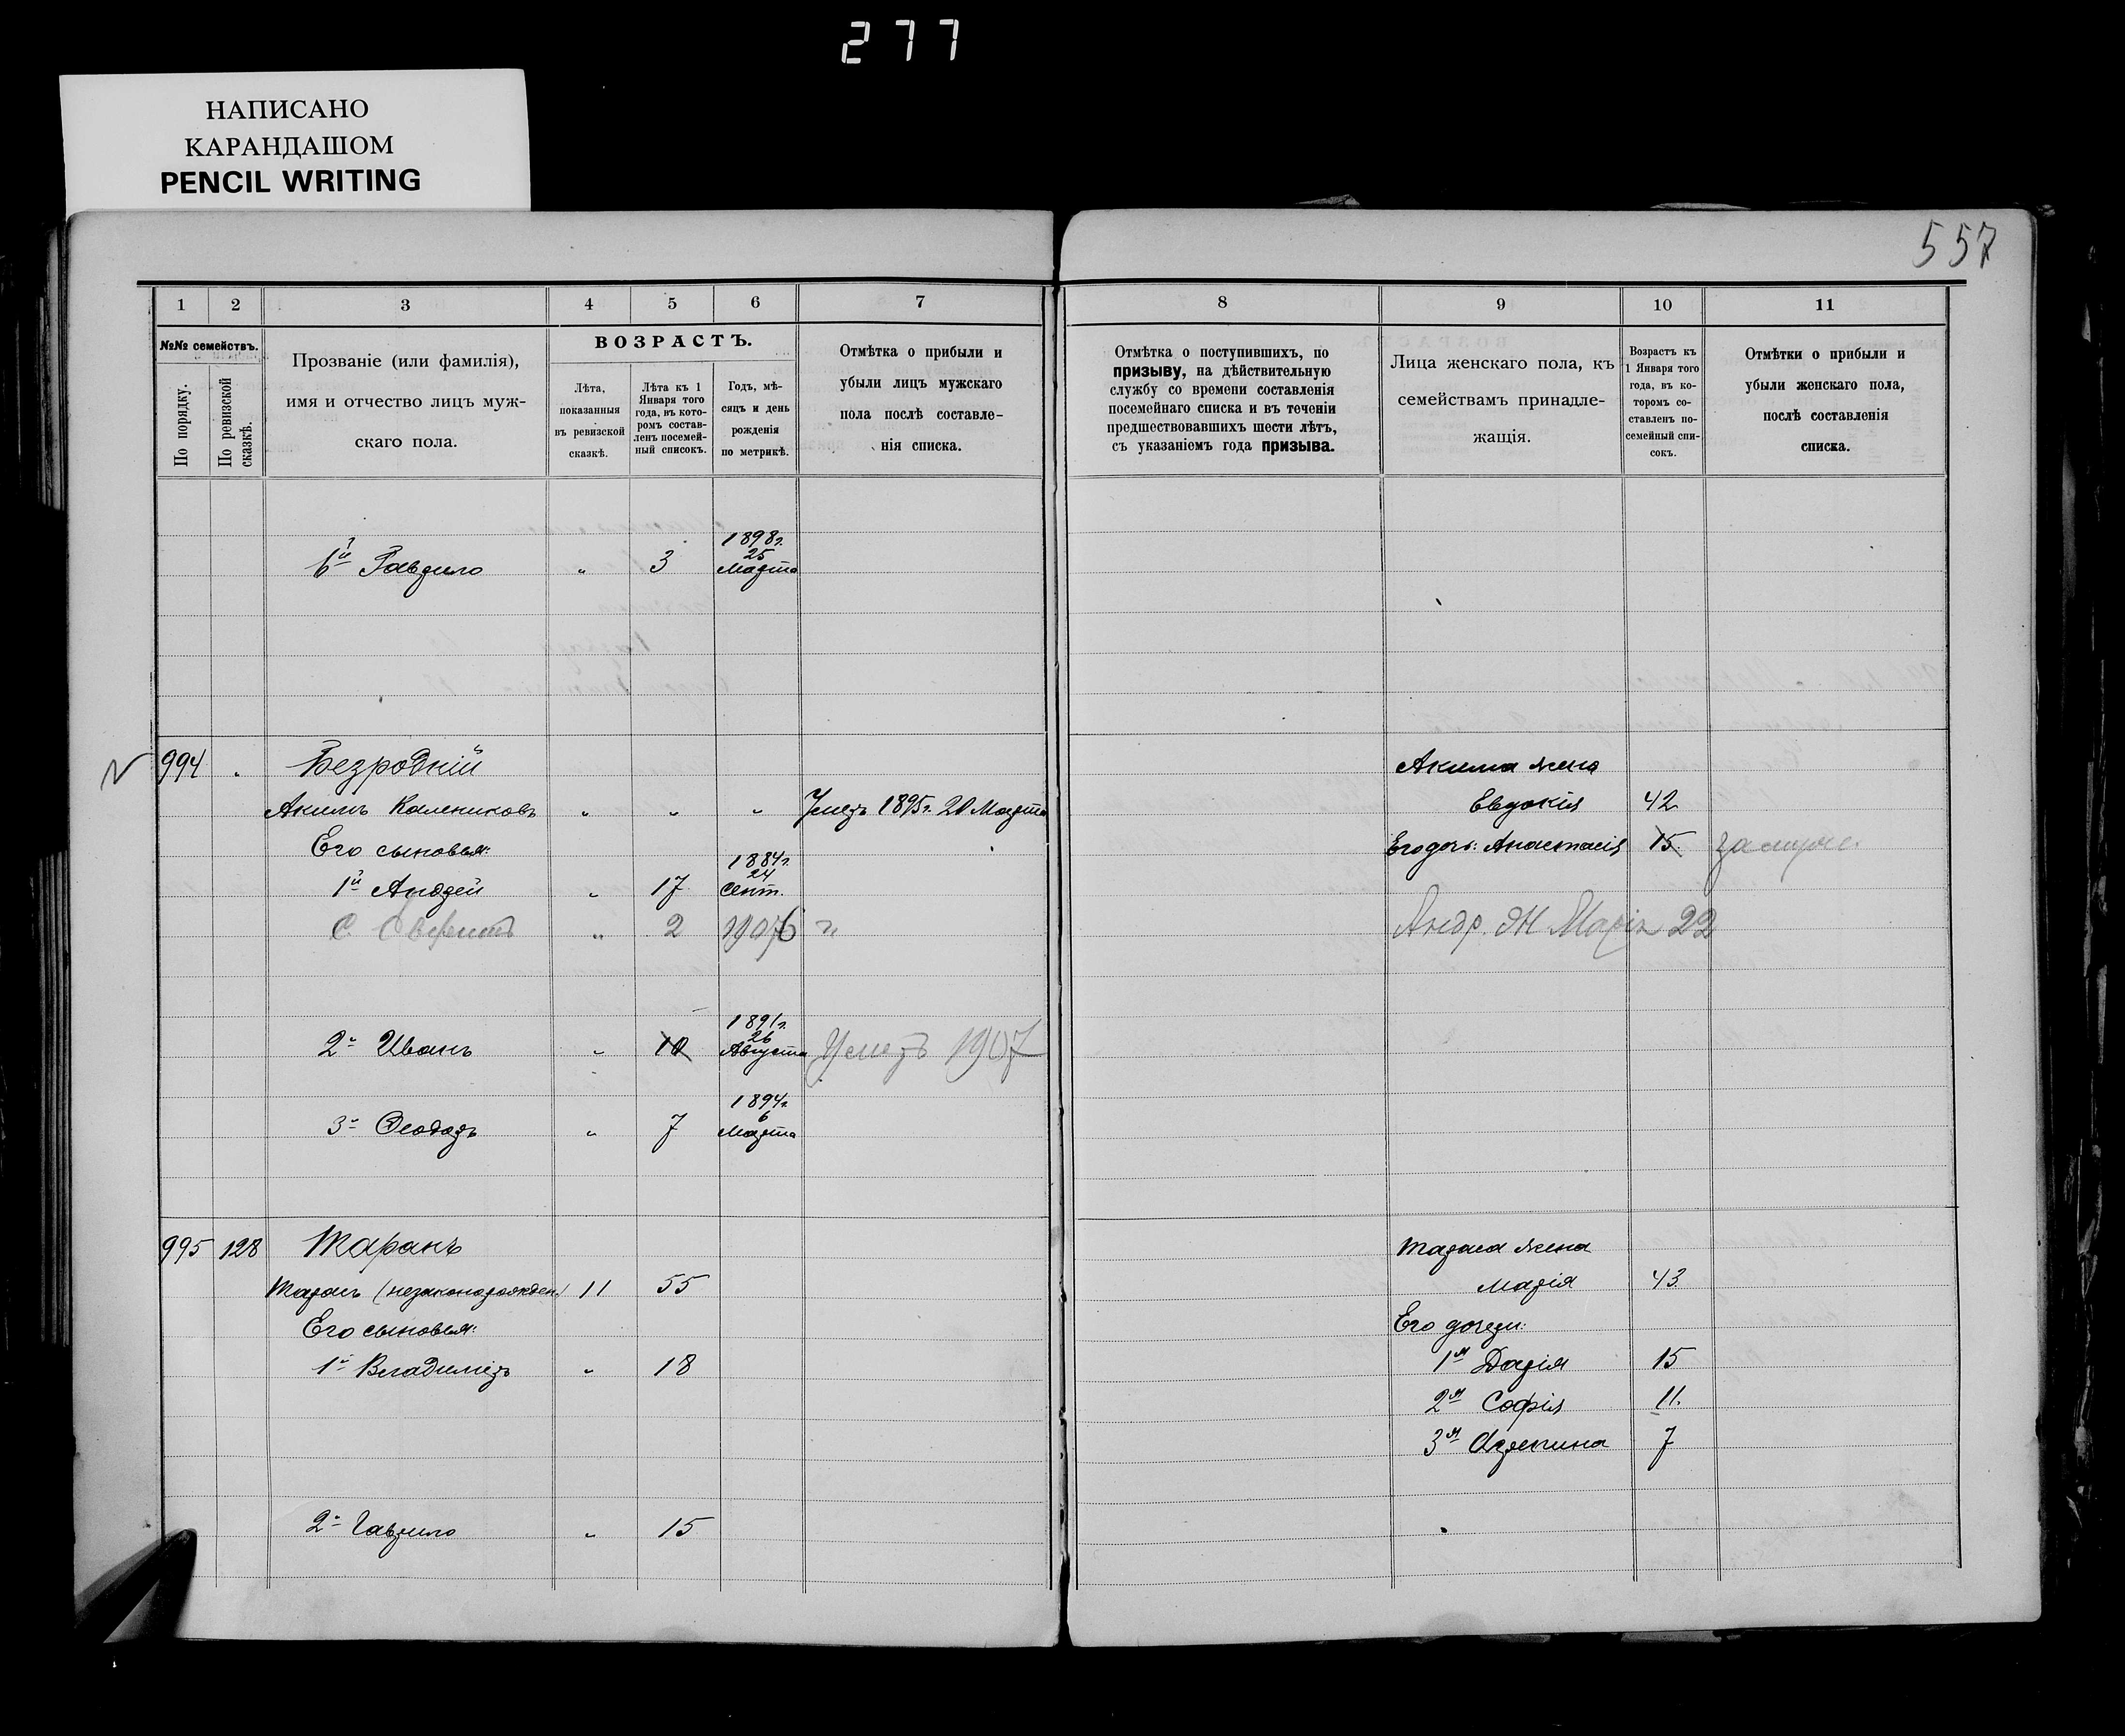 277
НАПИСАНО
КАРАНДАШОМ
PENCIL WRITING
557
1 2 3 4 5 6 7 8 9 10 11
№№ семействъ.
По порядку.
По ревизской сказкѣ.
Прозваніе (или фамилія),
имя и отчество лицъ муж-
скаго пола.
ВОЗРАСТЪ.
Лѣта,
показанныя
въ ревизской
сказкѣ.
Лѣта къ 1
Января того
года, въ кото-
ромъ состав-
ленъ посемей-
ный списокъ.
Годъ, мѣ-
сяцъ и день
рожденія
по метрикѣ.
Отмѣтка о прибыли и
убыли лицъ мужскаго
пола послѣ составле-
нія списка.
Отмѣтка о поступившихъ, по
призыву, на дѣйствительную
службу со времени составленія
посемейнаго списка и въ теченіи
предшествовавшихъ шести лѣтъ,
съ указаніемъ года призыва.
Лица женскаго пола, къ
семействамъ принадле-
жащія.
Возрастъ къ
1 Января того
года, въ ко-
торомъ со-
ставленъ по-
семейный спи-
сокъ.
Отмѣтки о прибыли и
убыли женскаго пола,
послѣ составленія
списка.
1898 г.
25
6й Гаврило " 3 Марта
994 Безродній Акима жена
Акимъ Калениковъ " " " Умеръ 1895 г. 20 Марта Евдокія 42
Его сыновья: Его дочь: Анастасія 15 замуже.
1884 г.
24
1й Андрей " 17 Сент.
С. " 2 1906 г. Андр. Ж Марія 22
1891 г.
26
2й Иванъ " 10 Августа Умеръ 1907
1894 г.
6
3й Ѳеодоръ " 7 Марта
995 128 Таранъ Тараса жена
Тарасъ (незаконорожден.) 11 55 Марія 43
Его сыновья: Его дочери:
1й Владиміръ " 18 1я Дарія 15
2я Софія 11.
3я 7
2й Гаврило " 15